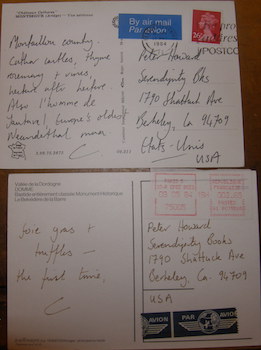 "Château Cathare"
MONTSEGUR (Ariège)
By air mail
Par avion
Montaillou country.
Cathar castles, thyme
rosemary & vines,
history after
Also l'homme de
Tautavel, Europe's oldest
Neanderthal man.
C
Peter Howard
Serendipity Bks
1790 Shattuck Ave
Berkeley, Ca 94709
Etats-Unis
USA
Vallée de la Dordogne
DOMME
foie gras &
truffles —
the first time,
C
Peter Howard
Serendipity Books
1790 Shattuck Ave
Berkeley, Ca. 94709
USA
PAR AVION